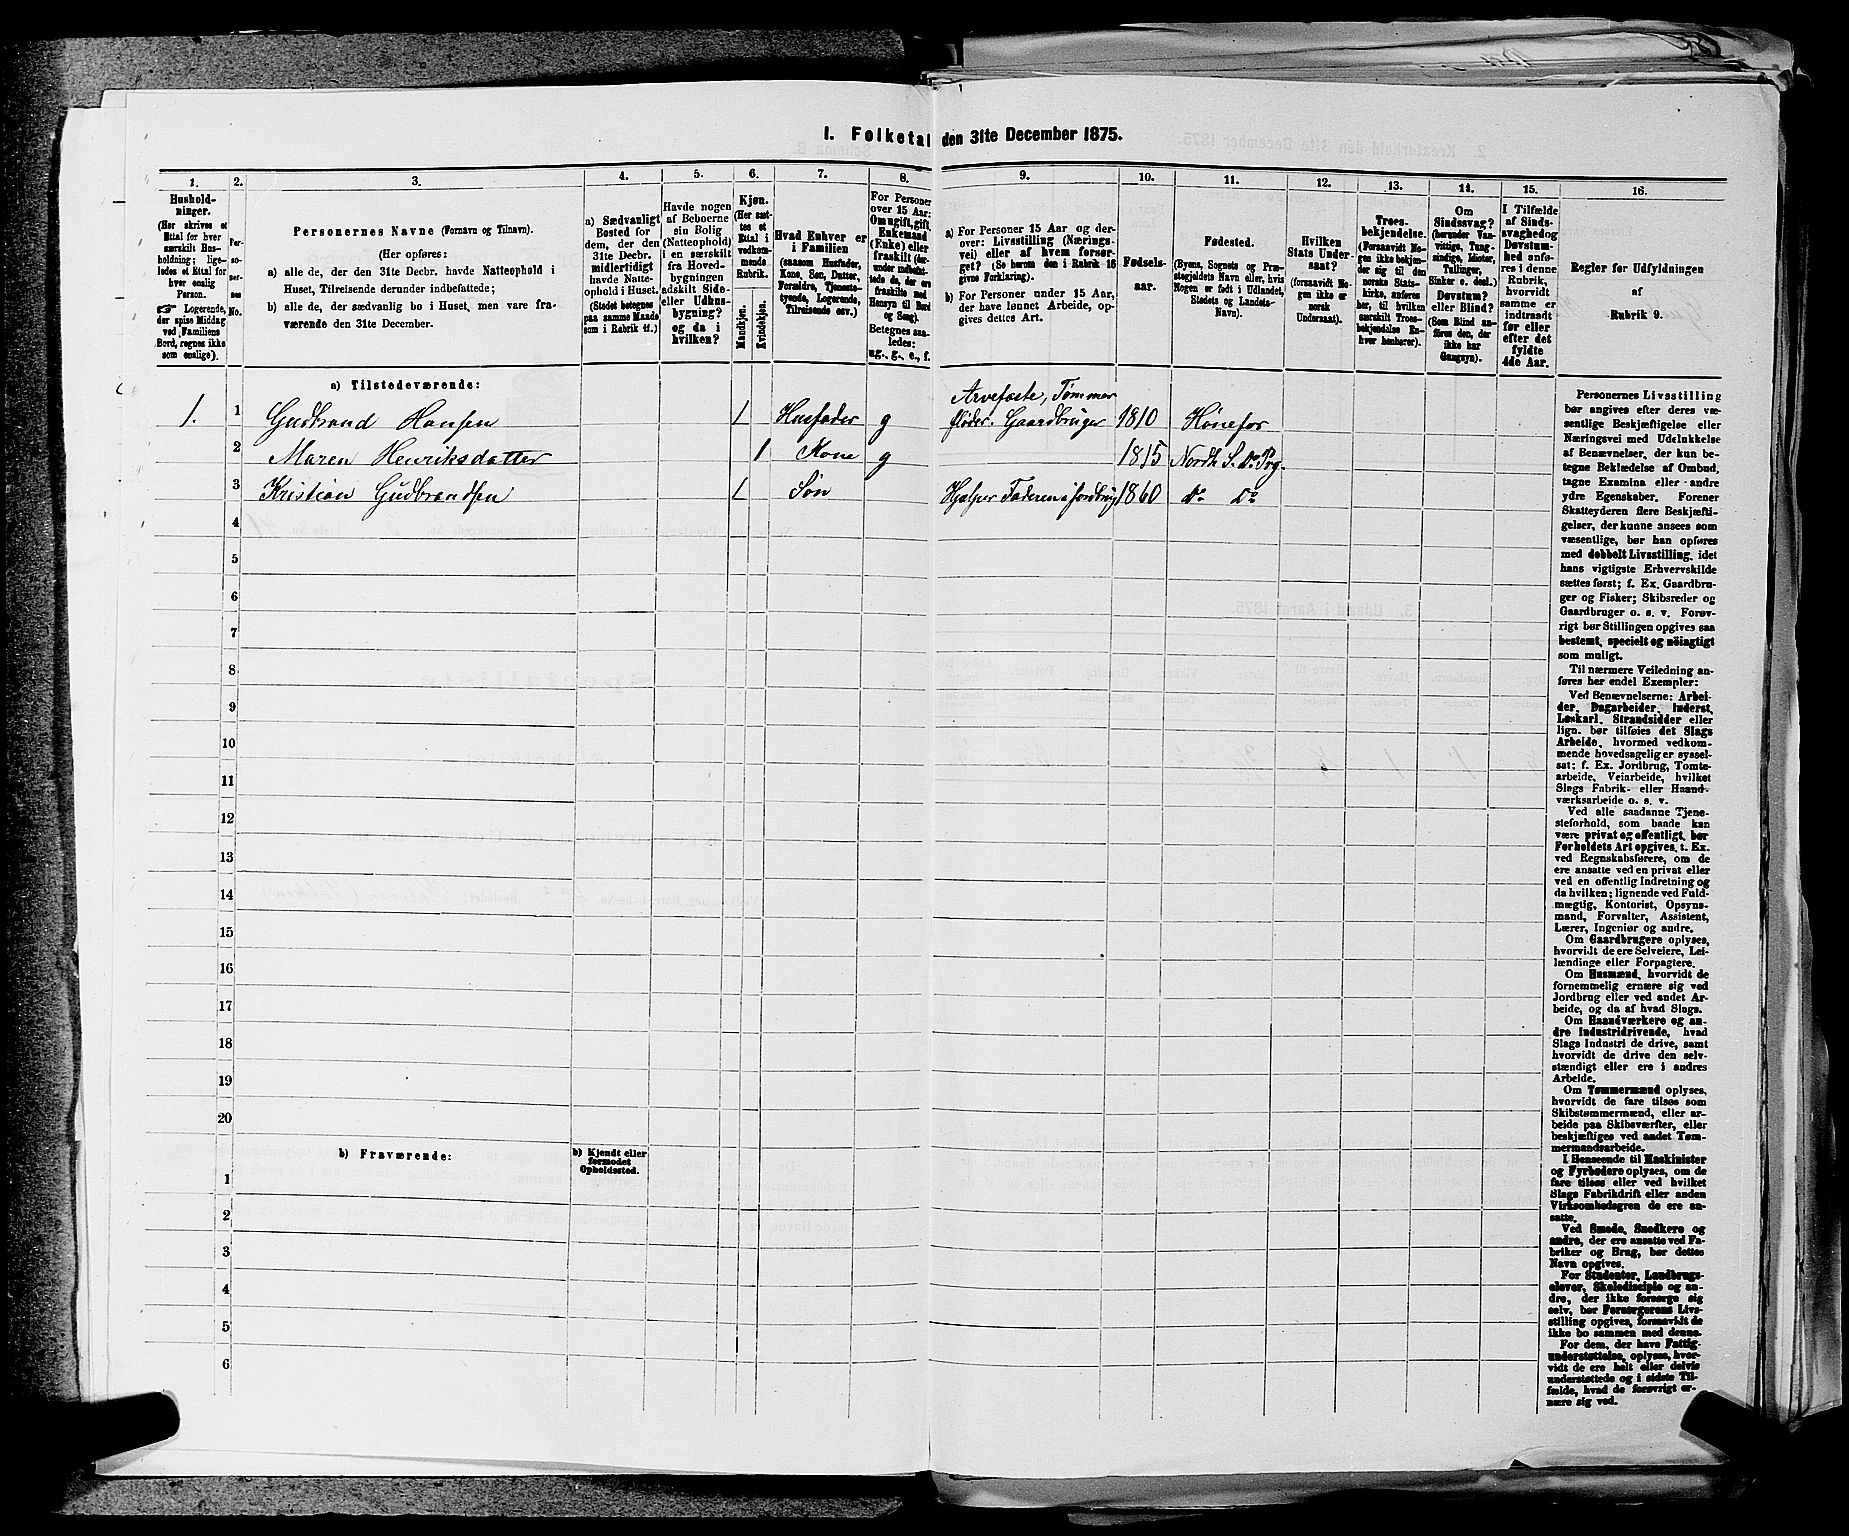 I. Folketal den 31te December 1875.
1.
Hushold-
ninger.
(Her skrives et
Ettal for hver
særskilt Hus-
holdning; lige-
ledes et Ettal for
hver enslig
Person.
Logerende,
der spise Middag
ved Familiens
Bord, regnes ikke
som enslige).
2.
Per-
so-
ner-
nes
No.
3.
Personernes Navne (Fornavn og Tilnavn).
(Her opføres:
a) alle de, der den 31te Decbr. havde Natteophold i
Huset, Tilreisende derunder indbefattede;
b) alle de, der sædvanlig bo i Huset, men vare fra-
værende den 31te December.
4.
a) Sædvanligt
Bosted for
dem, der den
31te Decbr.
midlertidigt
havde Natte-
ophold i Huset.
(Stedet betegnes
paa samme Maade
som i Rubrik 11.)
5.
Havde nogen
af Beboerne
sin Bolig
(Natteophold)
i en særskilt
fra Hoved-
bygningen
adskilt Side-
eller Udhus-
bygning?
og da i
hvilken?
6.
Kjøn.
(Her sæt-
tes et
Ettal i
vedkom-
mende
Rubrik.
Mandkjøn.
Kvindekjøn.
7.
Hvad Enhver er
i Familien
(saasom Husfader,
Kone, Søn, Datter,
Forældre, Tjeneste-
tyende, Logerende,
Tilreisende osv.)
8.
For Personer
over 15 Aar:
Om ugift, gift,
Enkemand
(Enke) eller
fraskilt
Betegnes saa-
ledes:
ug., g., e., f.
9.
a) For Personer 15 Aar og der-
over: Livsstilling (Nærings-
vei) eller af hvem forsør-
get? (Se herom den i Rubrik 16
givne Forklaring).
b) For Personer under 15 Aar,
der have lønnet Arbeide, op-
gives dettes Art.
10.
Fødsels-
aar.
11.
Fødested.
(Byens, Sognets og Præ-
stegjeldets Navn eller, hvis
Nogen er født i Udlandet,
Stedets og Landets
Navn).
12.
Hvilken
Stats Under-
saat?
(forsaavidt No-
gen ikke er
norsk
Undersaat).
13.
Troes-
bekjendelse.
(Forsaavidt No-
gen ikke bekjen-
der sig til den
norske Stats-
kirke, anføres
her, til hvilken
særskilt Troes-
bekjendelse En-
hver henhører).
14.
Om
Sindssvag?
(herunder Van-
vittige, Tung-
sindige, Idioter,
Tullinger,
Sinker o. desl.)
Døvstum?
eller Blind?
(Som Blind an-
føres den, der
ikke har
Gangsyn).
15.
I Tilfælde
af Sinds-
svaghed og
Døvstum-
hed anfø-
res i denne
Rubrik,
hvorvidt
samme er
indtraadt
før eller
efter det
fyldte
4de Aar.
16.
Regler for Udfyldningen
af
Rubrik 9.
a) Tilstedeværende:
1. 1 Gudbrand Hansen 1 Husfader g Arvefæste, Tømmer
fløder. Gaardbruger 1810 Hønefos
2 Maren Henriksdatter 1 Kone g 1815 Nordh. S. Do. Prg.
3 Kristian Gudbrandsen 1 Søn Hjælper Faderen i Jordbrug 1860 Do. Do.
4
5
6
7
8
9
10
11
12
13
14
15
16
17
18
19
20
b) Fraværende:
b) Kjendt eller
formodet
Opholdssted.
1
2
3
4
5
6
Personernes Livsstilling
bør angives efter deres væ-
sentlige Beskjæftigelse eller
Næringsvei med Udelukkelse
af Benævnelser, der kun be-
tegne Beklædelse af Ombud,
tagne Examina eller andre
ydre Egenskaber. Forener
Skatteyderen flere Beskjæfti-
gelser, der kunne ansees som
væsentlige, bør han opføres
med dobbelt Livsstilling, idet
hans vigtigste Erhvervskilde
sættes først; f. Ex. Gaardbru-
ger og Fisker; Skibsreder og
Gaardbruger o. s. v. Forøv-
rigt bør Stillingen opgives saa
bestemt, specielt og nøiagtigt
som muligt.
Til nærmere Veiledning an-
føres her endel Exempler:
Ved Benævnelserne: Arbei-
der, Dagarbeider, Inderst,
Løskarl, Strandsidder eller
lign. bør tilføies det Slags
Arbeide, hvormed vedkom-
mende hovedsagelig er syssel-
sat; f. Ex. Jordbrug, Tomte-
arbeide, Veiarbeide, hvilket
Slags Fabrik- eller Haand-
værksarbeide o. s. v.
Ved alle saadanne Tjene-
steforhold, som baade kan
være privat og offentligt, bør
Forholdets Art opgives, t. Ex.
ved Regnskabsførere, om de
ere ansatte ved en privat eller
ved en offentlig Indretning og
da hvilken; lignende ved Fuld-
mægtig, Kontorist, Opsyns-
mand, Forvalter, Assistent,
Lærer, Ingeniør og andre.
Om Gaardbrugere oplyses,
hvorvidt de ere Selveiere, Lei-
lændinge eller Forpagtere.
Om Husmænd, hvorvidt de
fornemmelig ernære sig ved
Jordbrug eller ved andet Ar-
beide, og da af hvad Slags.
Om Haandværkere og an-
dre Industridrivende, hvad
Slags Industri de drive, samt
hvorvidt de drive den selv-
stændigt eller ere i andres
Arbeide.
Om Tømmermænd oplyses,
hvorvidt de fare tilsøs som
Skibstømmermænd, eller ar-
beide paa Skibsværfter, eller
beskjæftiges ved andet Tøm-
mermandsarbeide.
I Henseende til Maskinister
og Fyrbødere oplyses, om de
fare tilsøs eller ved hvilket
Slags Fabrikdrift eller anden
Virksomhedsgren de ere an-
satte.
Ved Smede, Snedkere og
andre, der ere ansatte ved Fa-
briker og Brug, bør dettes
Navn opgives.
For Studenter, Landbrugs-
elever, Skoledisciple og an-
dre, der ikke forsørge sig
selv, bør Forsørgerens Livs-
stilling opgives, forsaavidt de
ikke bo sammen med denne.
For dem, der have Fattig-
understøttelse, oplyses, hvor-
vidt de ere helt eller delvis
understøttede og i sidste Til-
fælde, hvad de forøvrigt er-
nære sig ved.